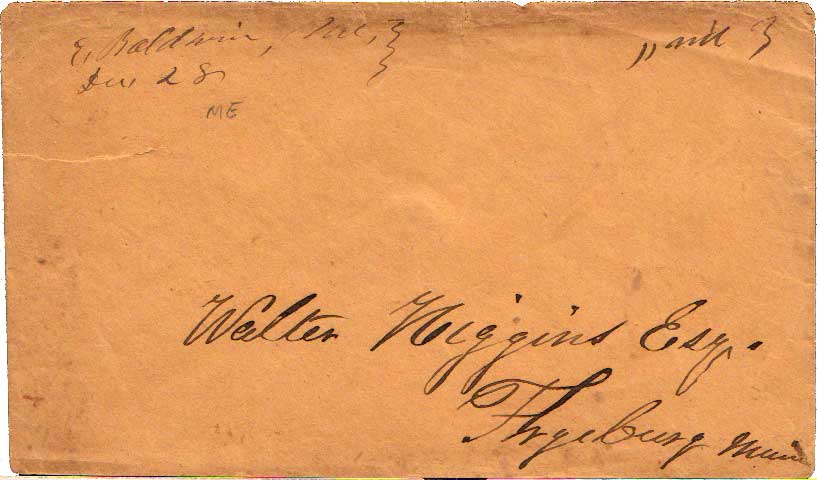 E. Baldwin, Me,
Dec 28
ME
Walter Higgins Esq.
Fryeburg Maine